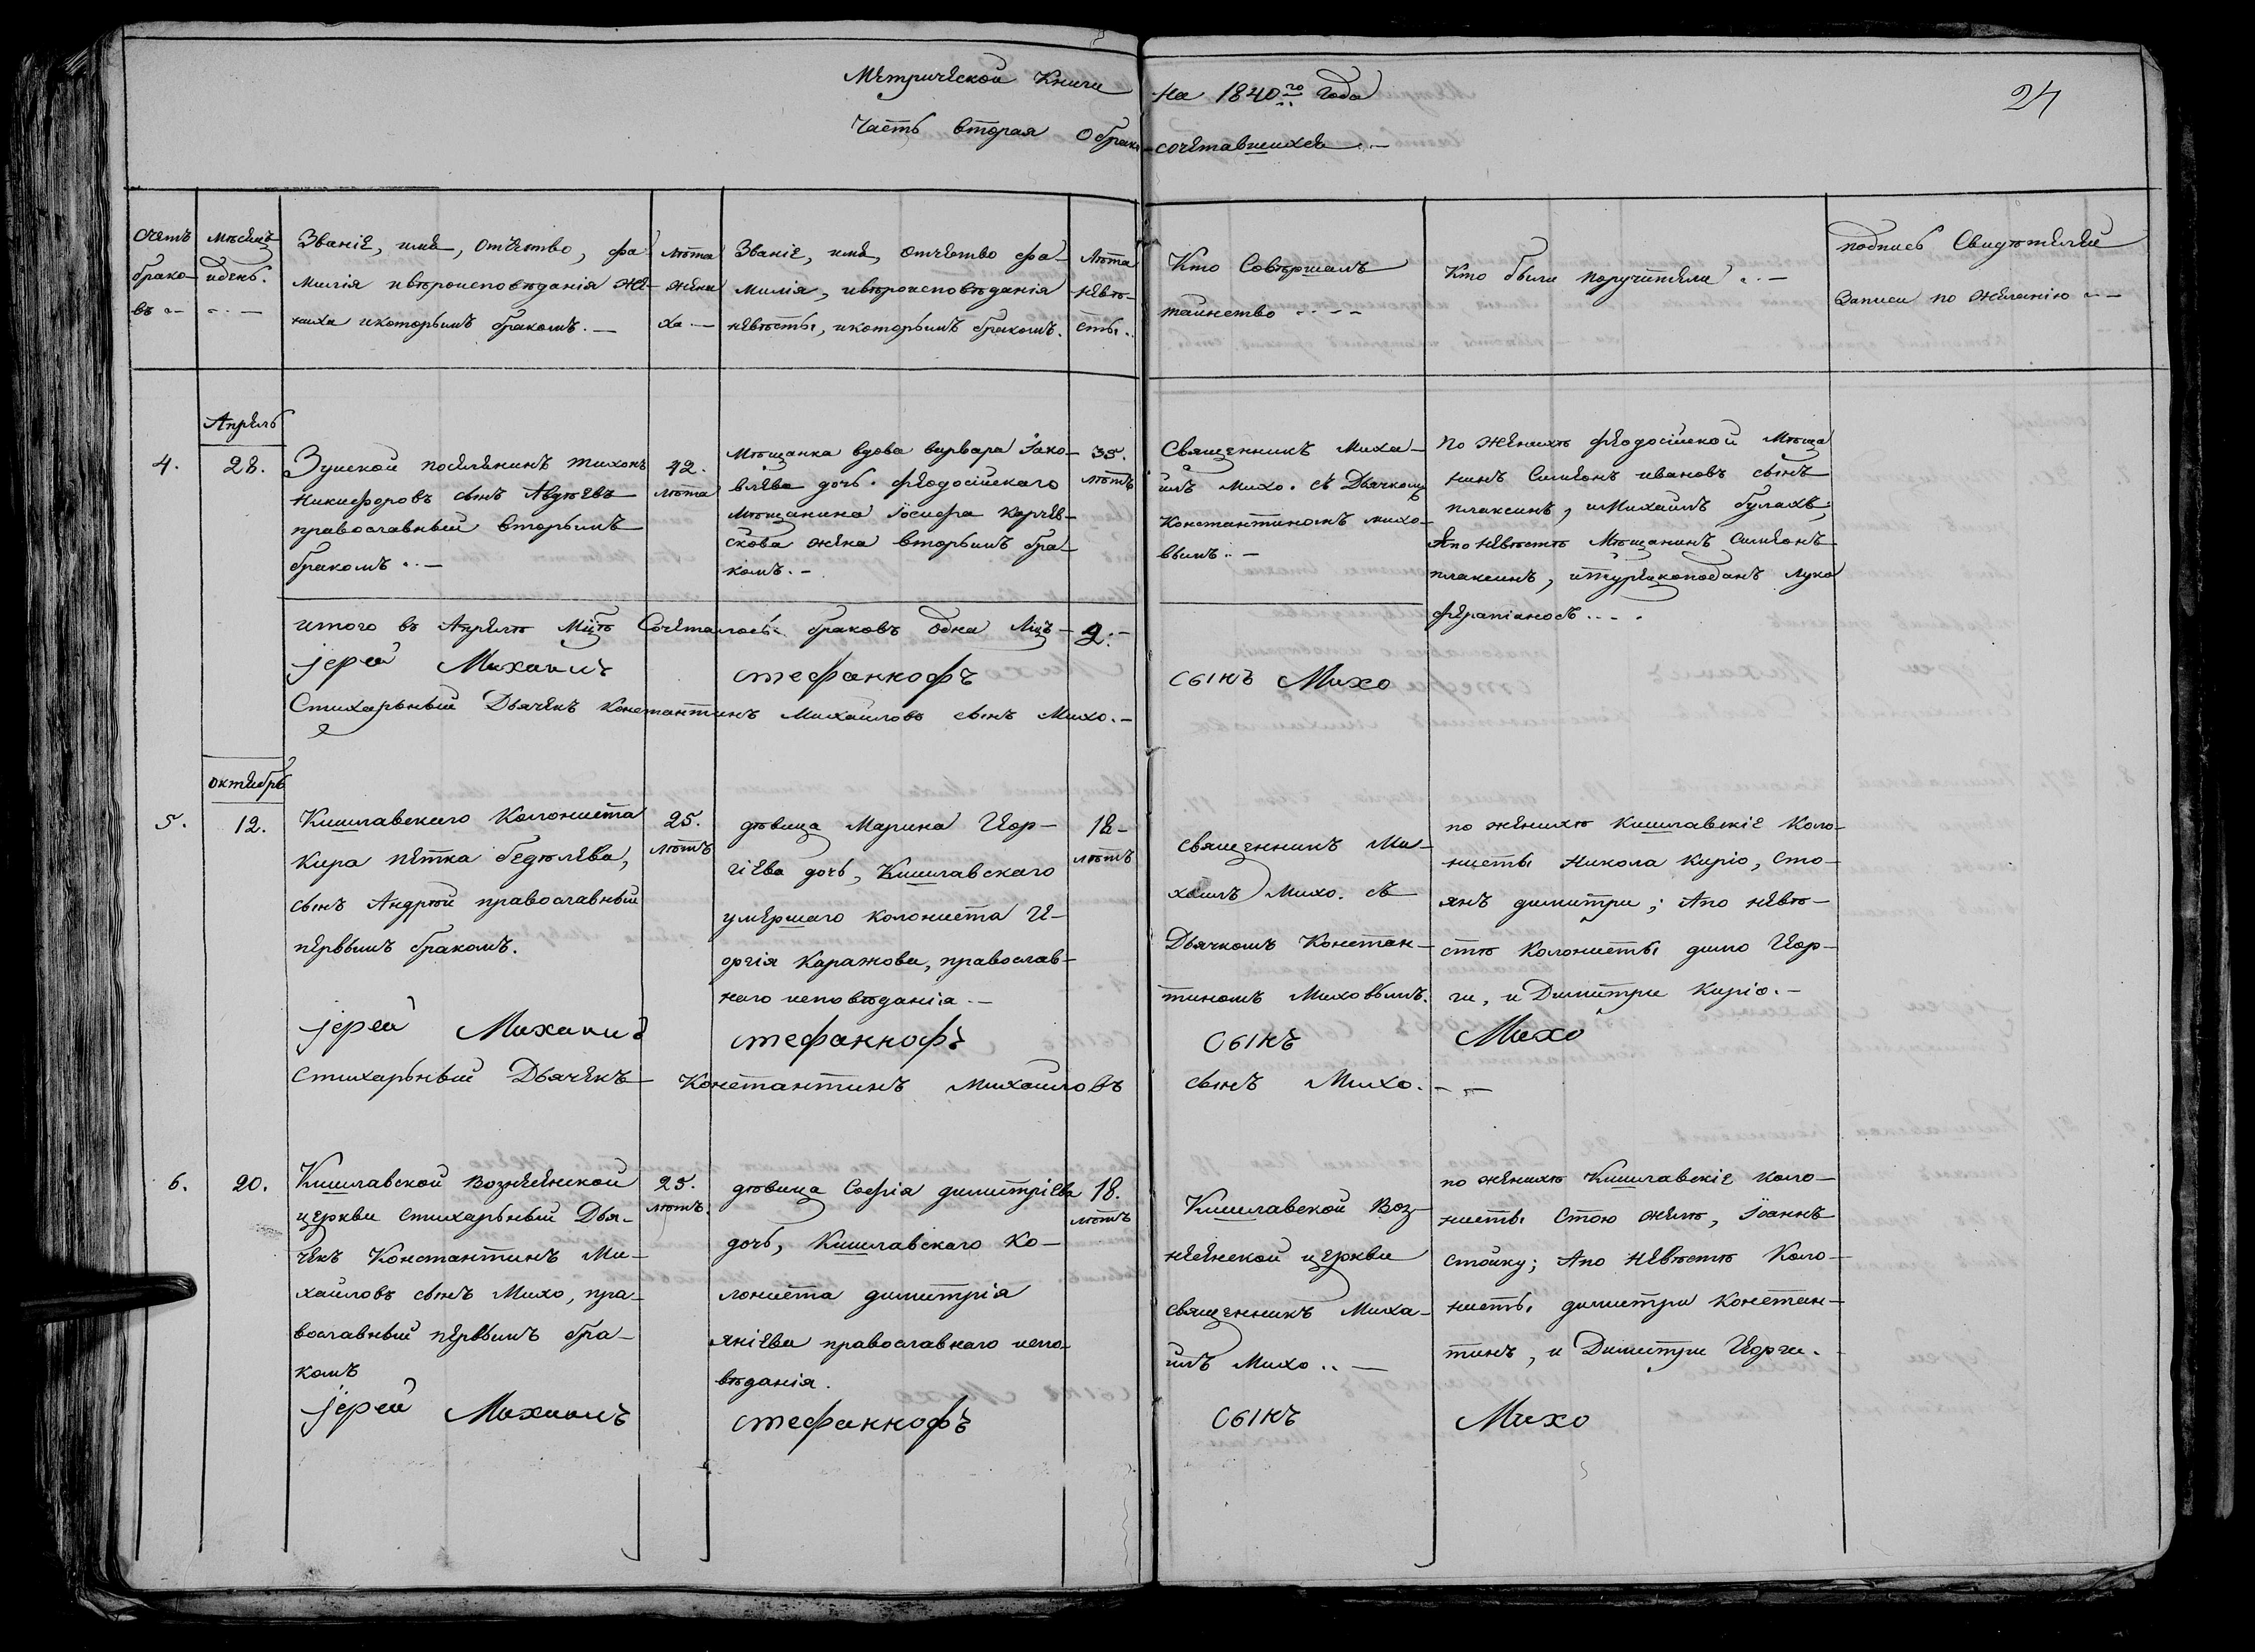 Метрической Книги на 1840го года
24
Часть вторая О бракосочетавшихся
Счетъ
брако-
въ
Мѣсяцъ
и день.
Званіе, имя, отчество, фа-
милія и вѣроисповѣданія же-
ниха и которымъ бракомъ.
Лѣта
жени
ха
Званіе, имя, отчество фа-
милія, и вѣроисповѣданія
невѣсты, и которымъ бракомъ.
Лѣта
невѣ-
сты
Кто Совѣршалъ
таинство
Кто были поручители
подпись Свидѣтелей
Записи по желанію
Апрель
4.
28.
Зуйской поселянинъ тихонъ
Никифоровъ сынъ Авдѣевъ
православный вторымъ
бракомъ
42.
лѣта
Мѣщанка вдова варвара Іако-
влева дочь. феодосійского
мѣщанина Іосифа
скова жена вторымъ бра-
комъ.
35.
лѣтъ
Священникъ Миха-
илъ Михо. съ Дьячкомъ
Константиномъ михо-
вымъ
По женихѣ феодосійской Мѣща
нинъ Симеонъ ивановъ сынъ
плаксинъ, и Михаилъ булахъ;
А по невѣстѣ Мѣщанинъ Симеонъ
плаксинъ, и турецкоподанъ Лука
ферапіаносъ
итого въ Апрелѣ Мцѣ Сочеталось браковъ одна Лицъ 2.
іерей Михаилъ стефанкофъ сынъ Михо
Стихарный Дьячекъ Константинъ Михаиловъ сынъ Михо.
октябрь
5.
12.
Кишлавскаго Колониста
Кира петка бедѣлева,
сынъ Андрѣй православный
первымъ бракомъ.
25.
лѣтъ
дѣвица Марина Геор-
гіева дочь, Кишлавскаго
умершаго колониста Ге-
оргія Каражова, православ-
наго исповѣданія
18
лѣтъ
священникъ Ми-
хаилъ Михо. съ
Дьячкомъ Констан-
тиномъ Миховымъ.
по женихѣ Кишлавскіе Коло-
нисты Никола Киріо, сто-
янъ димитри; А по невѣ-
стѣ Колонисты димо Геор-
ги, и Димитри Киріо.
іерей Михаилъ стефанкофъ сынъ Михо
Стихарный Дьячекъ Константинъ Михаиловъ сынъ Михо.
6.
20.
Кишлавской вознесенской
церкви стихарный Дья-
чекъ Константинъ Ми-
хайловъ сынъ Михо, пра-
вославный первымъ бра-
комъ
25.
лѣтъ.
дѣвица Софія димитріева
дочь, Кишлавскаго Ко-
лониста димитрія
яніева православнаго испо-
вѣданія.
18.
лѣтъ
Кишлавской Воз-
несенской церкви
священникъ Миха-
илъ Михо
по женихѣ Кишлавскіе коло-
нисты Стою желѣ, Іоаннъ
стойку; А по невѣстѣ Коло-
нисты димитри Констан-
тинъ, и Димитри Георги.
іерей Михаилъ стефанкофъ сынъ Михо